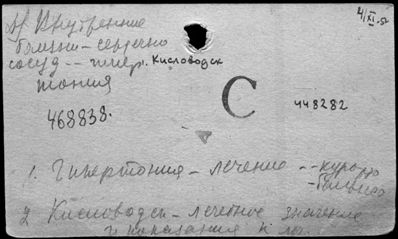 Внутренние
болезни - сердечно
сосуд -- гипер. Кисловодск
тония
4/XI-52
С
468838.
448282
1. Гипертония - лечение -- курорто
- бальнео
2 Кисловодск - лечебное значение
и показания к леч.